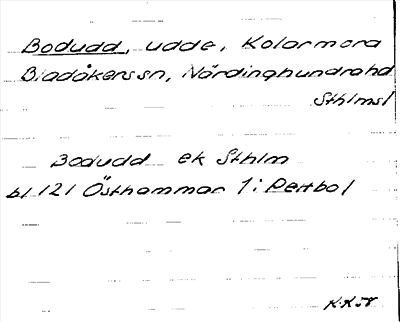 Bodudd, udde, Kolarmora
Bladåkers sn, Närdinghundra hd
Sthlms l
Bodudd ek Sthlm
bl 121 Östhammar 1:
K.K-r